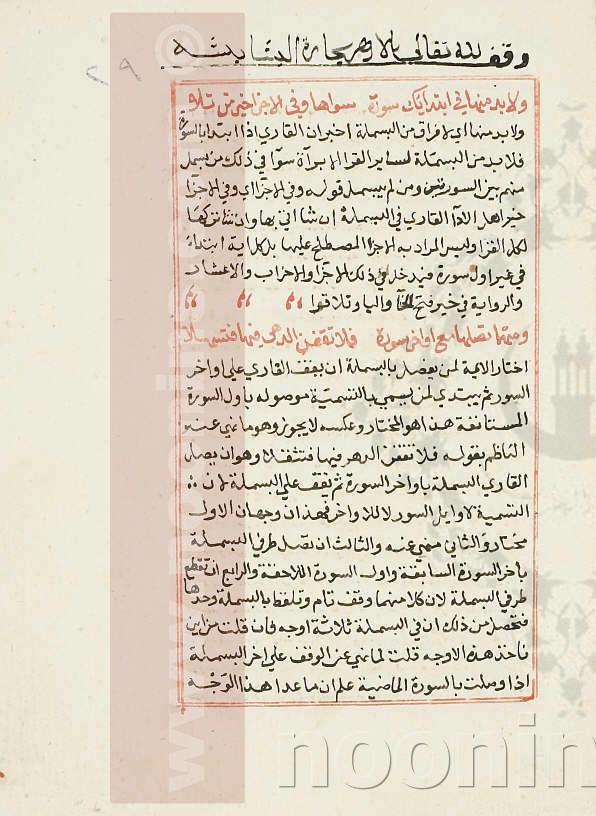 وقف لله تعالى بالازهر بحارة الدشايشه
٢٩
ولا بد منها في ابتدايك سورة سواها وفي الاجزا خير من تلا
ولا بد منها اي لا فراق من البسملة اخبران القاري اذا ابتدا بالسورة
فلا بد من البسملة لساير القرا الا براة سوا في ذلك من بسمل
منهم بين السورتين ومن لم يبسمل قوله وفي الاجزا اي وفي الاجزا
خير اهل الادا القاري في البسملة ان شا اتي بها وان شا تركها
لكل القرا وليس المراد به الاجزا المصطلح عليها بل كل اية ابتداء
في غير اول سورة فيدخل في ذلك الاجزا والاحزاب والاعشار
والرواية في خير فتح الخا واليا وتلا قروا
ومهما تصلها مع اواخر سورة فلا تقفن الدهر فيها فتثقلا
اختار الايمة لمن يفصل بالبسملة ان يقف القاري علي اواخر
السور ثم يبتدي لمن يسمي بالتسمية موصوله باول السورة
المستانفة هذا هو المختار وعكسه لا يجوز وهو ما نهي عنه
الناظم بقوله فلا تقفن الدهر فيها فتثقلا وهو ان يصل
القاري البسملة باواخر السورة ثم يقف علي البسملة لان
التسمية لاوايل السور لا للاواخر فهذان وجهان الاول
مختار والثاني منهي عنه والثالث ان تصل طرفي البسملة
باخر السورة السابقة واول السورة اللاحقة والرابع ان تقطع
طرفي البسملة لان كلا منهما وقف تام وتلفظ بالبسملة وحدها
فتحصل من ذلك ان في البسملة ثلاثة اوجه فان قلت من اين
ناخذ هذه الاوجه قلت لما نهي عن الوقف علي اخر البسملة
اذا وصلت بالسورة الماضية علم ان ما عدا هذا الوجه
noonin